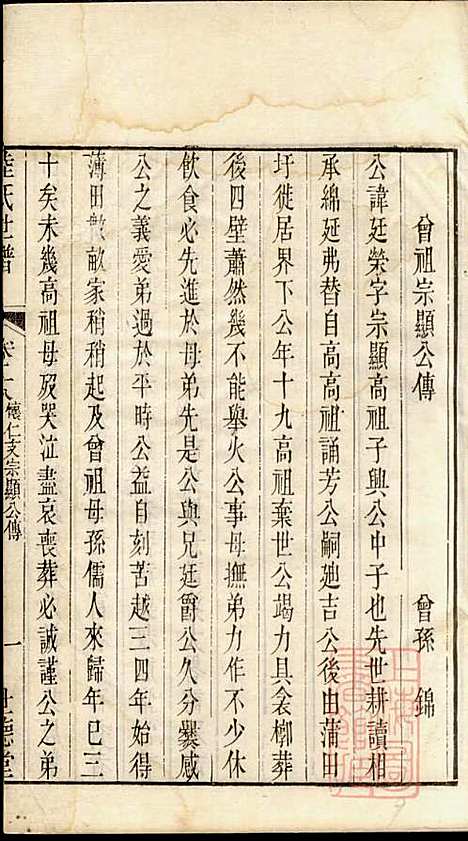 曾祖宗顯公傳　曾孫　錦
公諱廷榮字宗顯高祖子興公中子也先世耕讀相
承綿延弗替自高高祖誦芳公嗣廸吉公後由蒲田
圩徙居界下公年十九高祖棄世公竭力具衾槨葬
後四壁蕭然幾不能舉火公事母撫弟力作不少休
飲食必先進於母弟先是公與兄廷爵公久分爨感
公之義愛弟過於平時公益自刻苦越三四年始得
薄田數畝家稍稍起及曾祖母孫儒人來歸年已三
十矣未幾高祖母歿哭泣盡哀喪葬必誠謹公之弟
氏世譜　卷十八　懷仁支宗顯公傳　一　世德堂